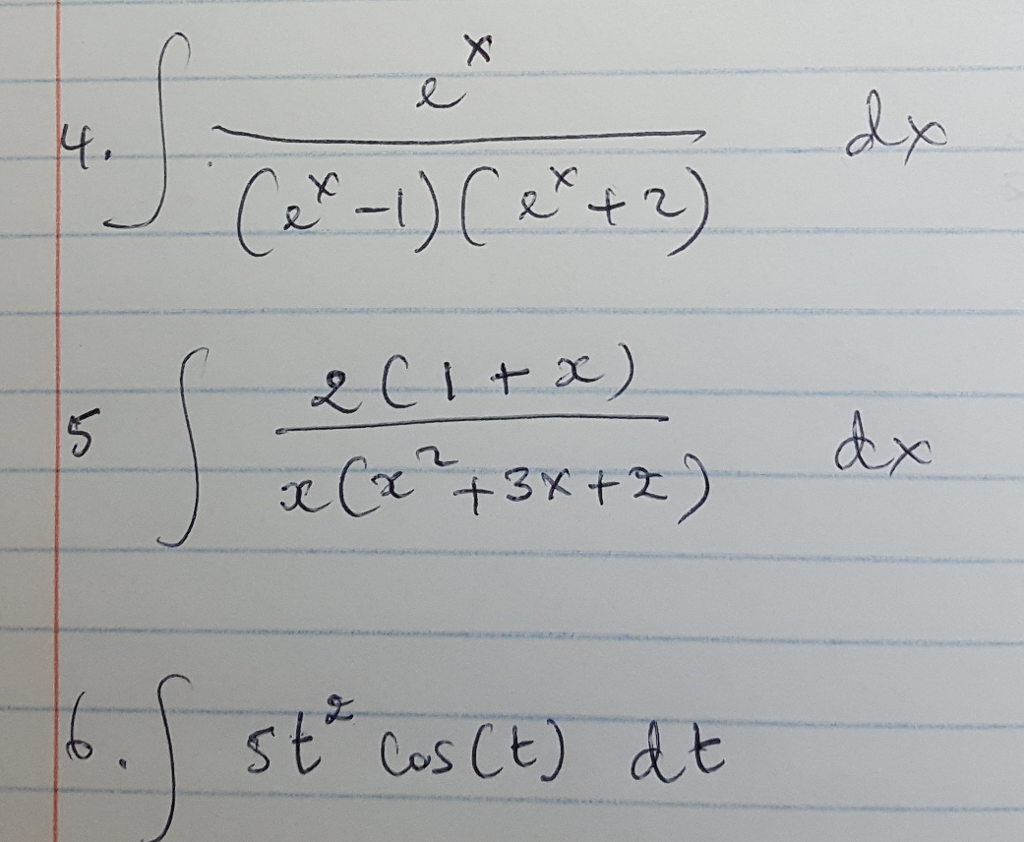 4. ∫ e^x / ((e^x - 1)(e^x + 2)) dx
5 ∫ 2(1 + x) / (x(x^2 + 3x + 2)) dx
6. ∫ 5t^2 cos(t) dt